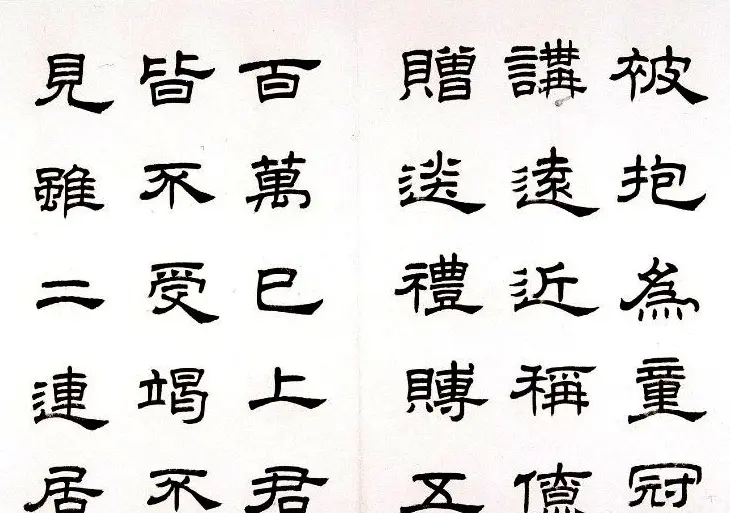 被抱為童冠
講遠近稱
贈送禮賻五
百萬已上君
皆不受竭不
見雖二連居